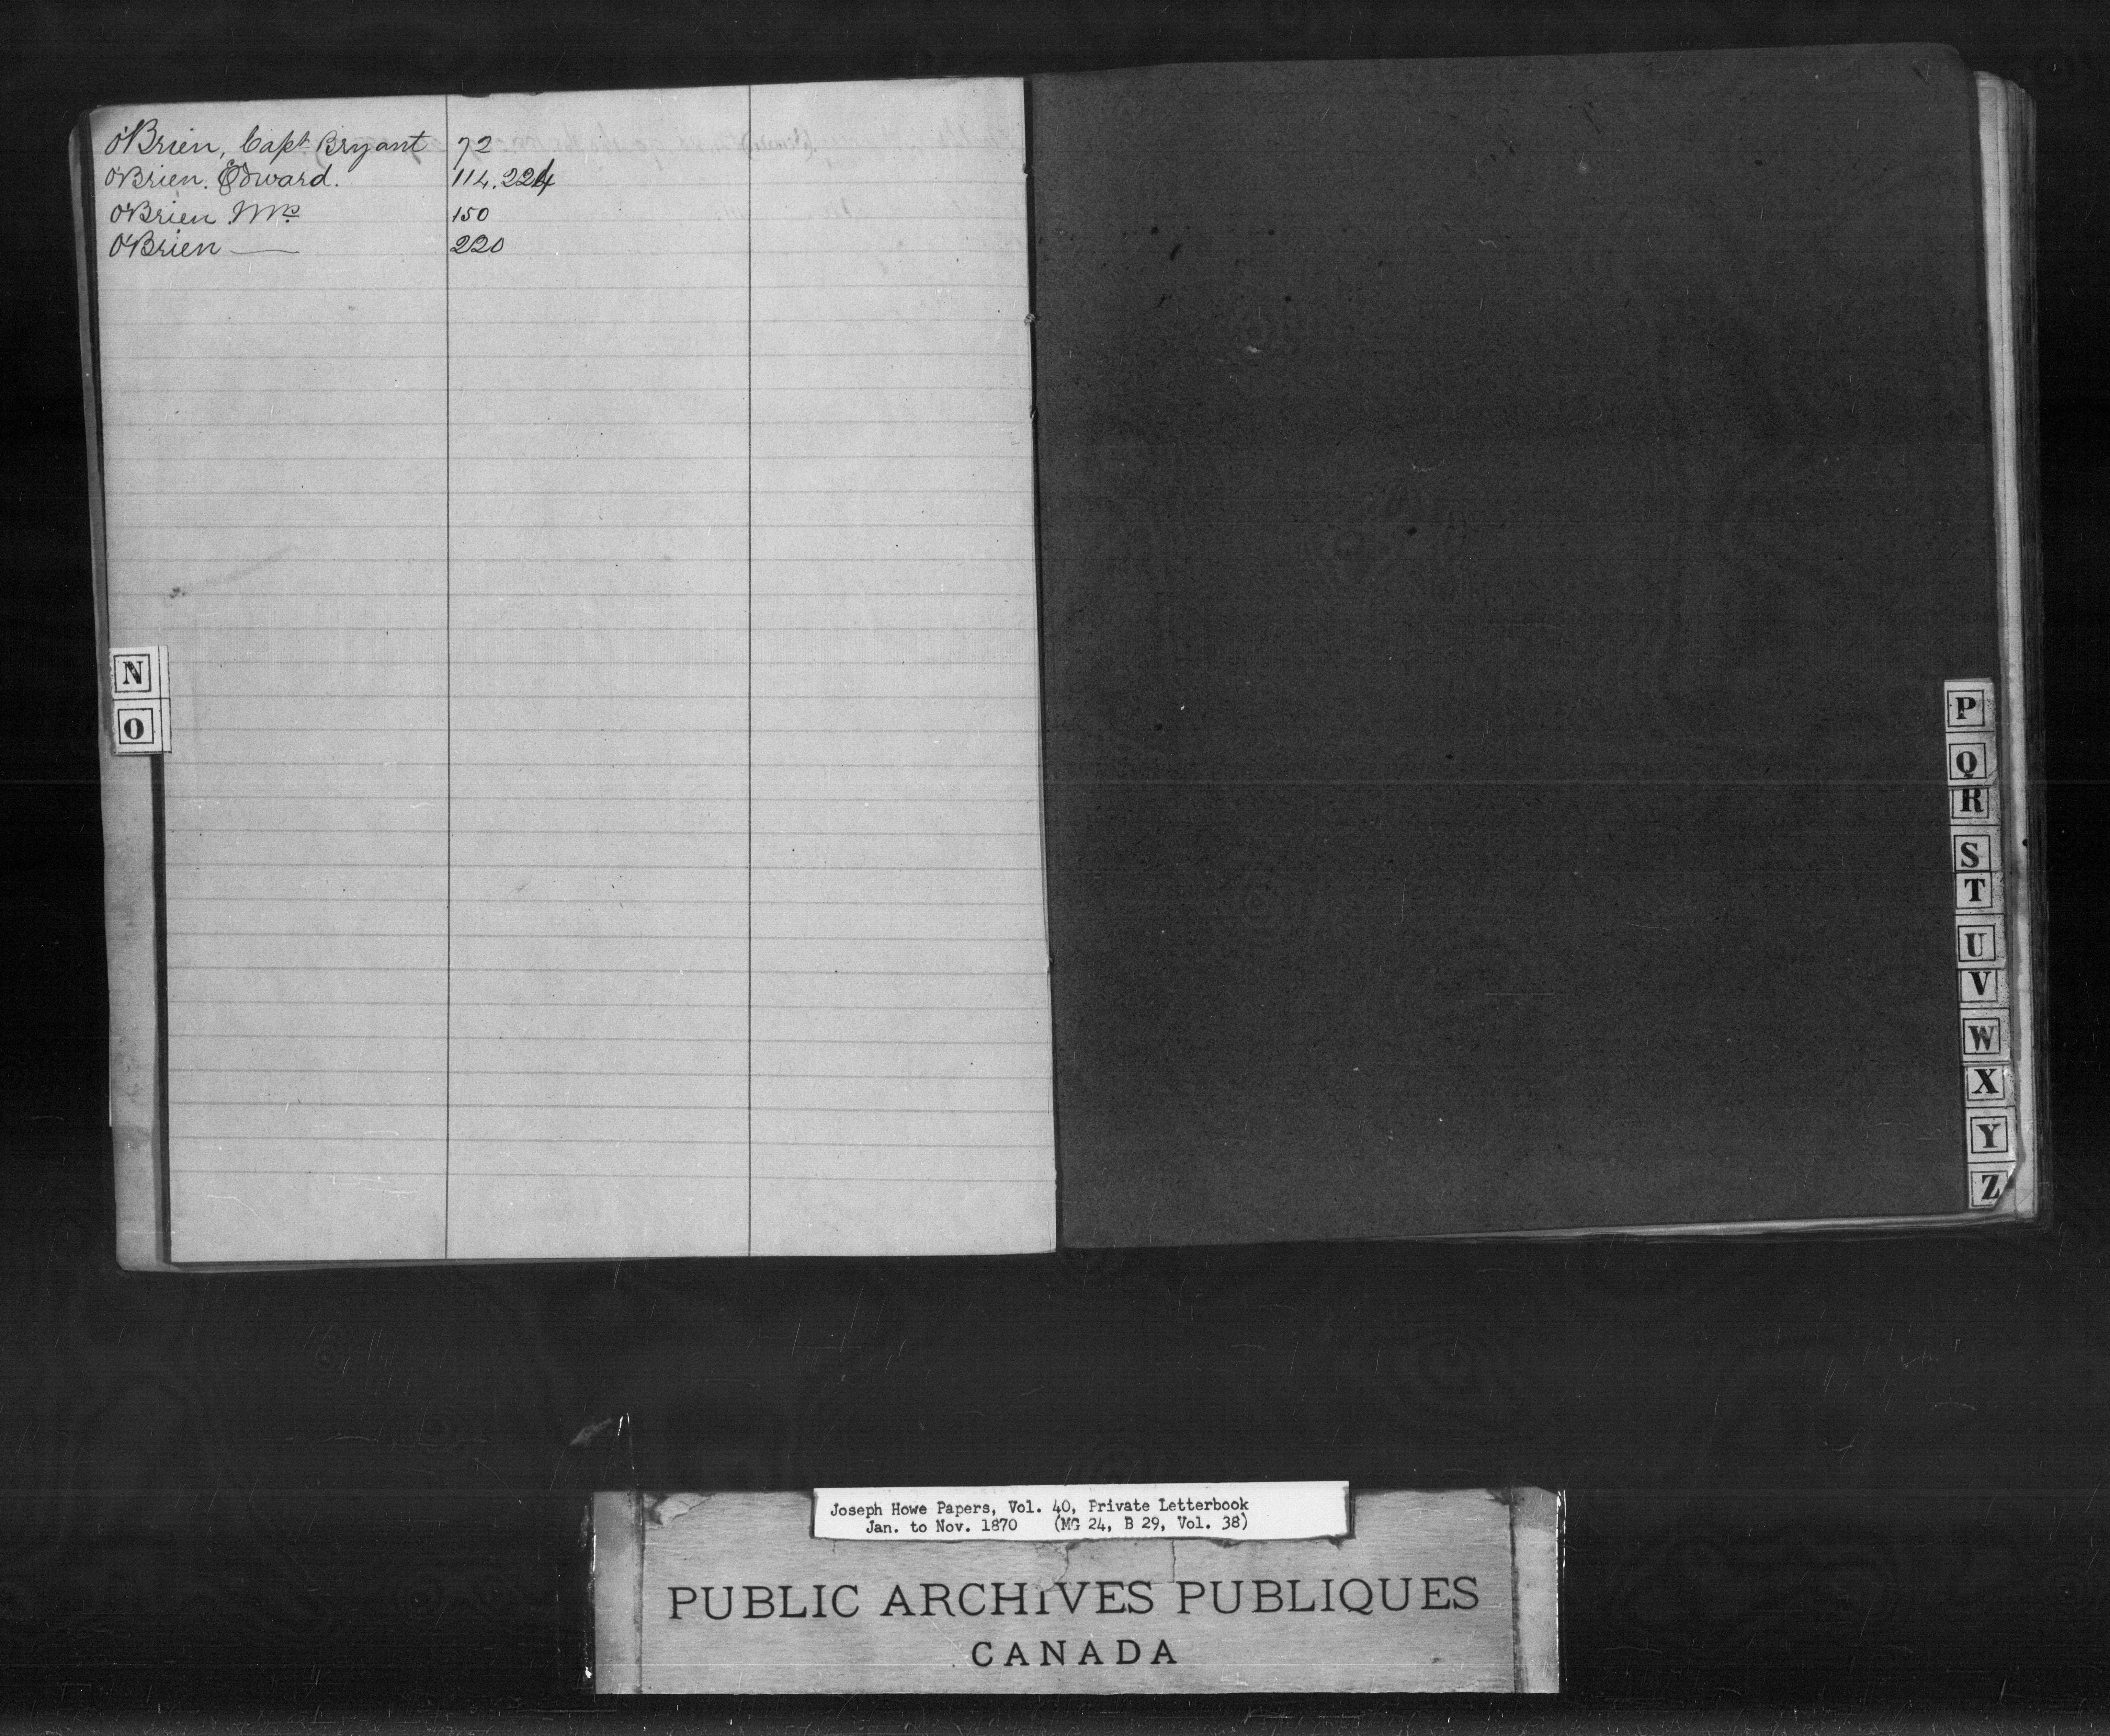 O'Brien, Capt Bryant 72
O'Brien. Edward. 114. 224
O'Brien Mrs 150
O'Brien — 220
N
O
P
Q
R
S
T
U
V
W
X
Y
Z
Joseph Howe Papers, Vol. 40, Private Letterbook
Jan. to Nov. 1870 (MG 24, B 29, Vol. 38)
PUBLIC ARCHIVES PUBLIQUES
CANADA